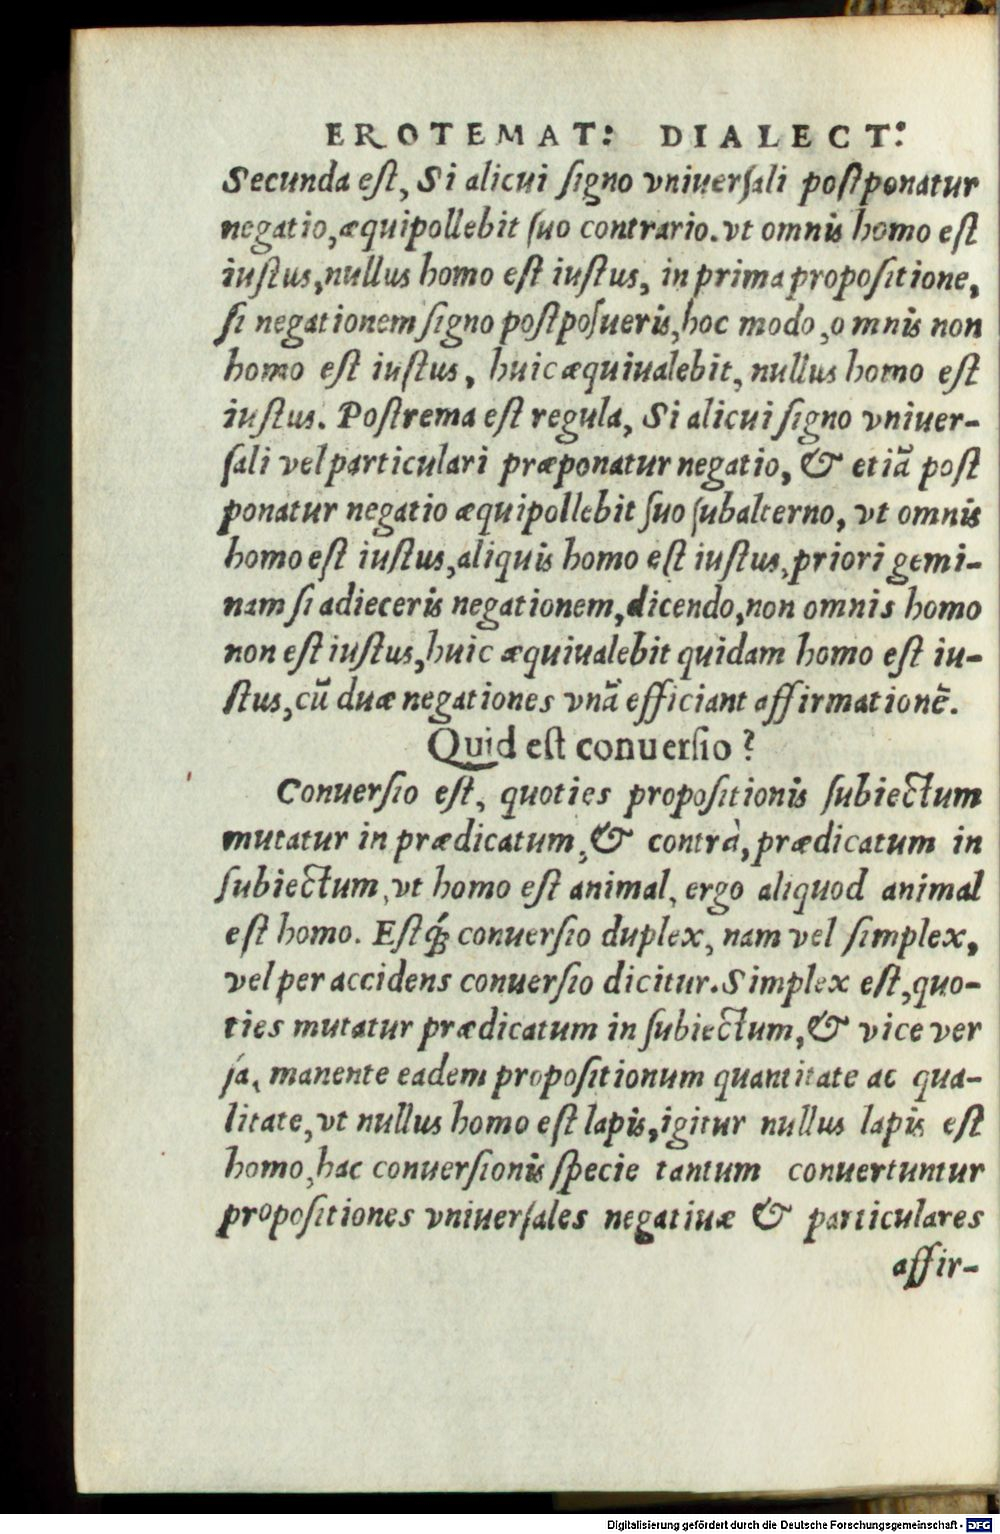 EROTEMAT: DIALECT:
Secunda eſt, Si alicui ſigno vniuerſali poſtponatur
negatio, æquipollebit ſuo contrario. vt omnis homo eſt
iuſtus, nullus homo eſt iuſtus, in prima propoſitione,
ſi negationem ſigno poſtpoſueris, hoc modo, omnis non
homo eſt iuſtus, huic æquiualebit, nullus homo eſt
iuſtus. Poſtrema eſt regula, Si alicui ſigno vniuer-
ſali vel particulari præponatur negatio, & etiã poſt
ponatur negatio æquipollebit ſuo ſubalterno, vt omnis
homo eſt iuſtus, aliquis homo eſt iuſtus, priori gemi-
nam ſi adieceris negationem, dicendo, non omnis homo
non eſt iuſtus, huic æquiualebit quidam homo eſt iu-
ſtus, cũ duæ negationes vnã efficiant affirmationẽ.
Quid eſt conuerſio?
Conuerſio eſt, quoties propoſitionis ſubiectum
mutatur in prædicatum, & contrà, prædicatum in
ſubiectum, vt homo eſt animal, ergo aliquod animal
eſt homo. Eſtq́; conuerſio duplex, nam vel ſimplex,
vel per accidens conuerſio dicitur. Simplex eſt, quo-
ties mutatur prædicatum in ſubiectum, & vice ver
ſa, manente eadem propoſitionum quantitate ac qua-
litate, vt nullus homo eſt lapis, igitur nullus lapis eſt
homo, hac conuerſionis ſpecie tantum conuertuntur
propoſitiones vniuerſales negatiuæ & particulares
affir-
Digitalisierung gefördert durch die Deutsche Forschungsgemeinschaft - DFG